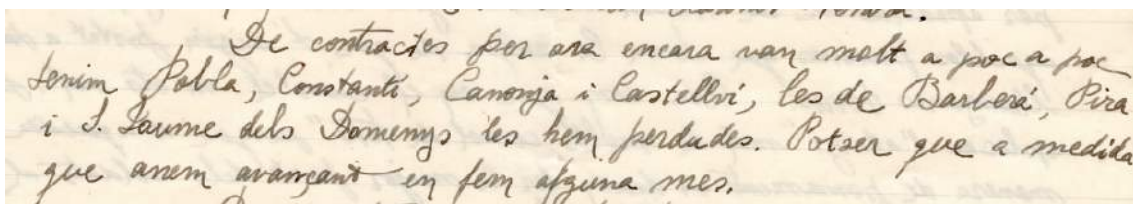 De contractes per ara encara van molt a poc a poc
tenim Pobla, Constantí, Canonja i Castellví, les de Barberá, Pira
i S. Jaume dels Domenys les hem perdudes. Potser que a medida
que anem avançant en fem alguna mes.